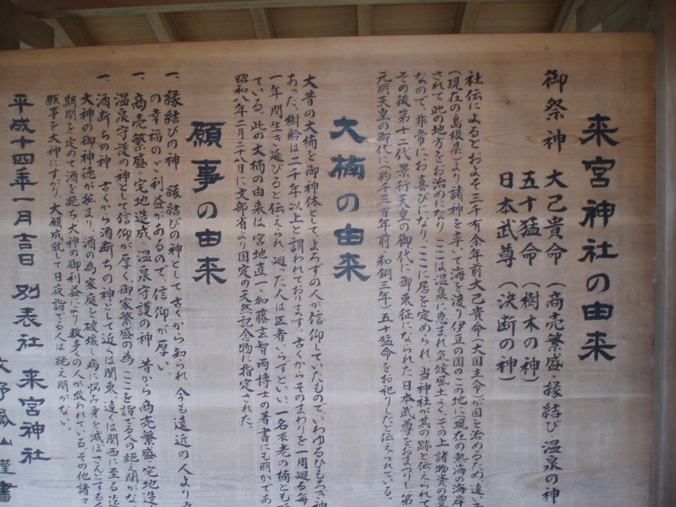 来宮神社の由来
御祭神 大己貴命 (商売繁盛・縁結び・温泉の神
五十猛命 (樹木の神)
日本武尊 (決断の神)
社伝によるとおよそ三千有余年前大己貴命(大国主命)が国を治めるため遠
(現在の島根県)より諸神を率いて海を渡り伊豆の国のこの地に(現在の熱海の海岸
されて此の地方をお治めになり、ここは温泉に恵まれ気候風土よく、その上諸物資の豊
なので、非常にお喜びになり、ここに居を定められ、当神社が其の跡と伝えられて
その後第十二代景行天皇の御代に御東征になられた日本武尊をおまつりし、第
元明天皇の御代に(約千三百年前)和銅三年、五十猛命をお祀りしたと伝えられている。
大楠の由来
大昔の大楠を御神体として、よろずの人が信仰していたもので、いわゆるひもろぎ神
あった、樹齢は二千年以上と謂われております。古くからそのまわりを一周廻る毎
一年間生き延びると伝えられ、廻った人は医者いらずといい、一名不老の楠とも
ている、此の大楠の由来は宮地直一、加藤玄智両博士の著書にも明かであ
昭和八年二月二十八日に文部省より国定の天然記念物に指定された。
願事の由来
一、縁結びの神 縁結びの神として古くから知られ今も遠近の人より
の幸福のご利益があるので、信仰が厚い。
一、商売繁盛・宅地造成・温泉守護の神 昔から商売繁盛・宅地造
温泉守護の神として信仰が厚く御家繁盛の為ここを詣でる人の絶え間がな
一、酒断ちの神 古くから酒断ちの神として近くは関東、遠くは関西に至る迄
大神の御神徳が弘まり、酒の為家庭を破壊し病に悩み身を滅ぼさんとする
期間を定めて酒を絶ち大神の御利益により数多くの人が救われている。その他諸々
願事を大神にすがり、大願成就して日夜詣でる人は絶え間がない。
平成十四年一月吉日 別表社 来宮神社